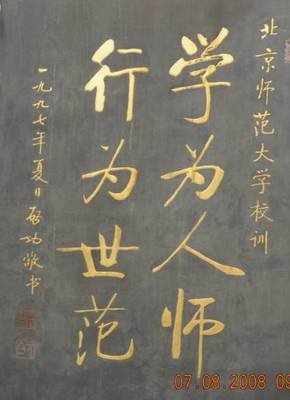 北京师范大学校训
学为人师
行为世范
一九九七年夏日启功敬书
07.08.2008